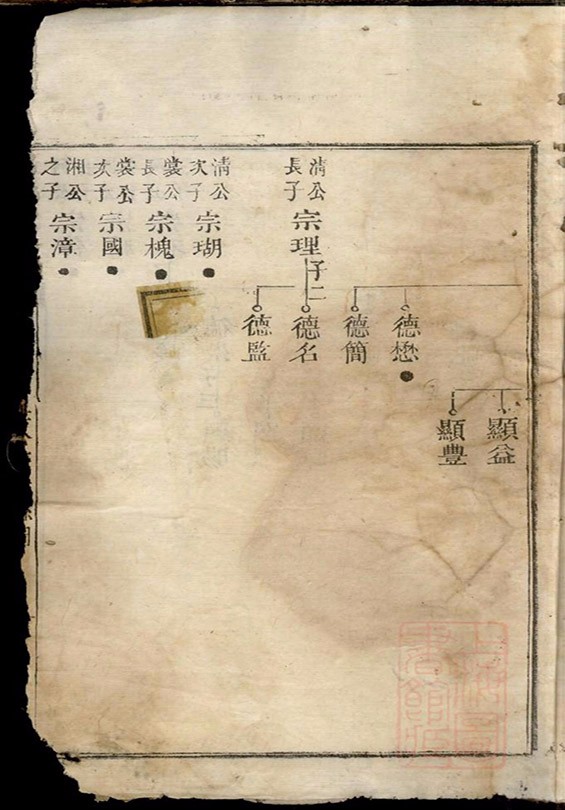 顯益
顯豐
德懋
德簡
清公長子 宗理 子二
德名
德監
清公次子 宗瑚
裳公長子 宗槐
裳公次子 宗國
湘公之子 宗漳